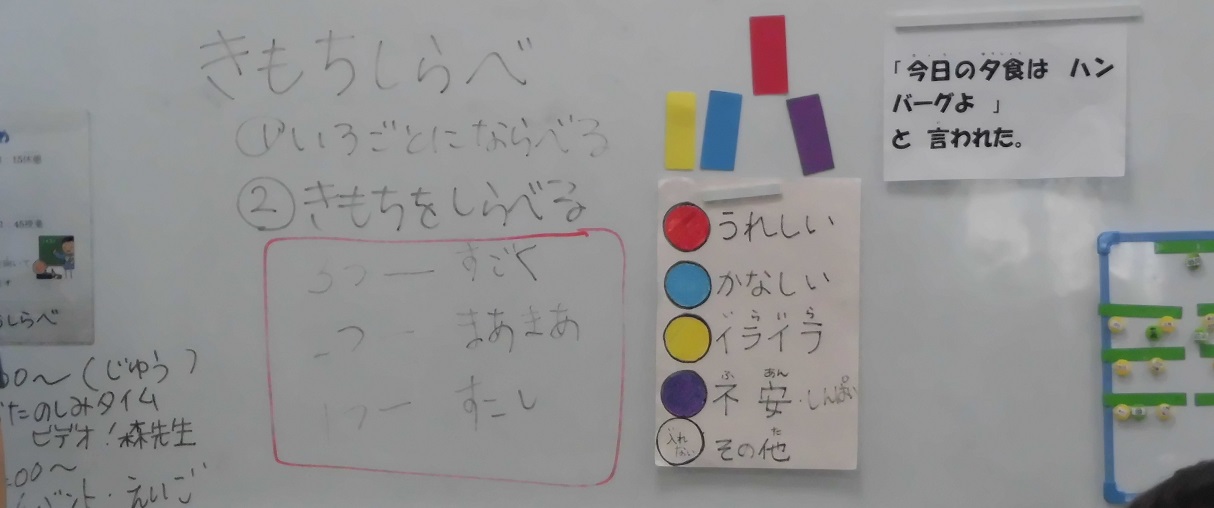 きもちしらべ
①いろごとにならべる
②きもちをしらべる
3つ ー すごく
2つ ー まあまあ
1つ ー すこし
うれしい
かなしい
イライラ
いらいら
不安・しんぱい
ふ あん
入れない
その他
た
「今日の夕食は ハン
バーグよ 」
と 言われた。
しらべ
00〜(じゅう)
たのしみタイム
ビデオ！森先生
00〜
ベント・えいご